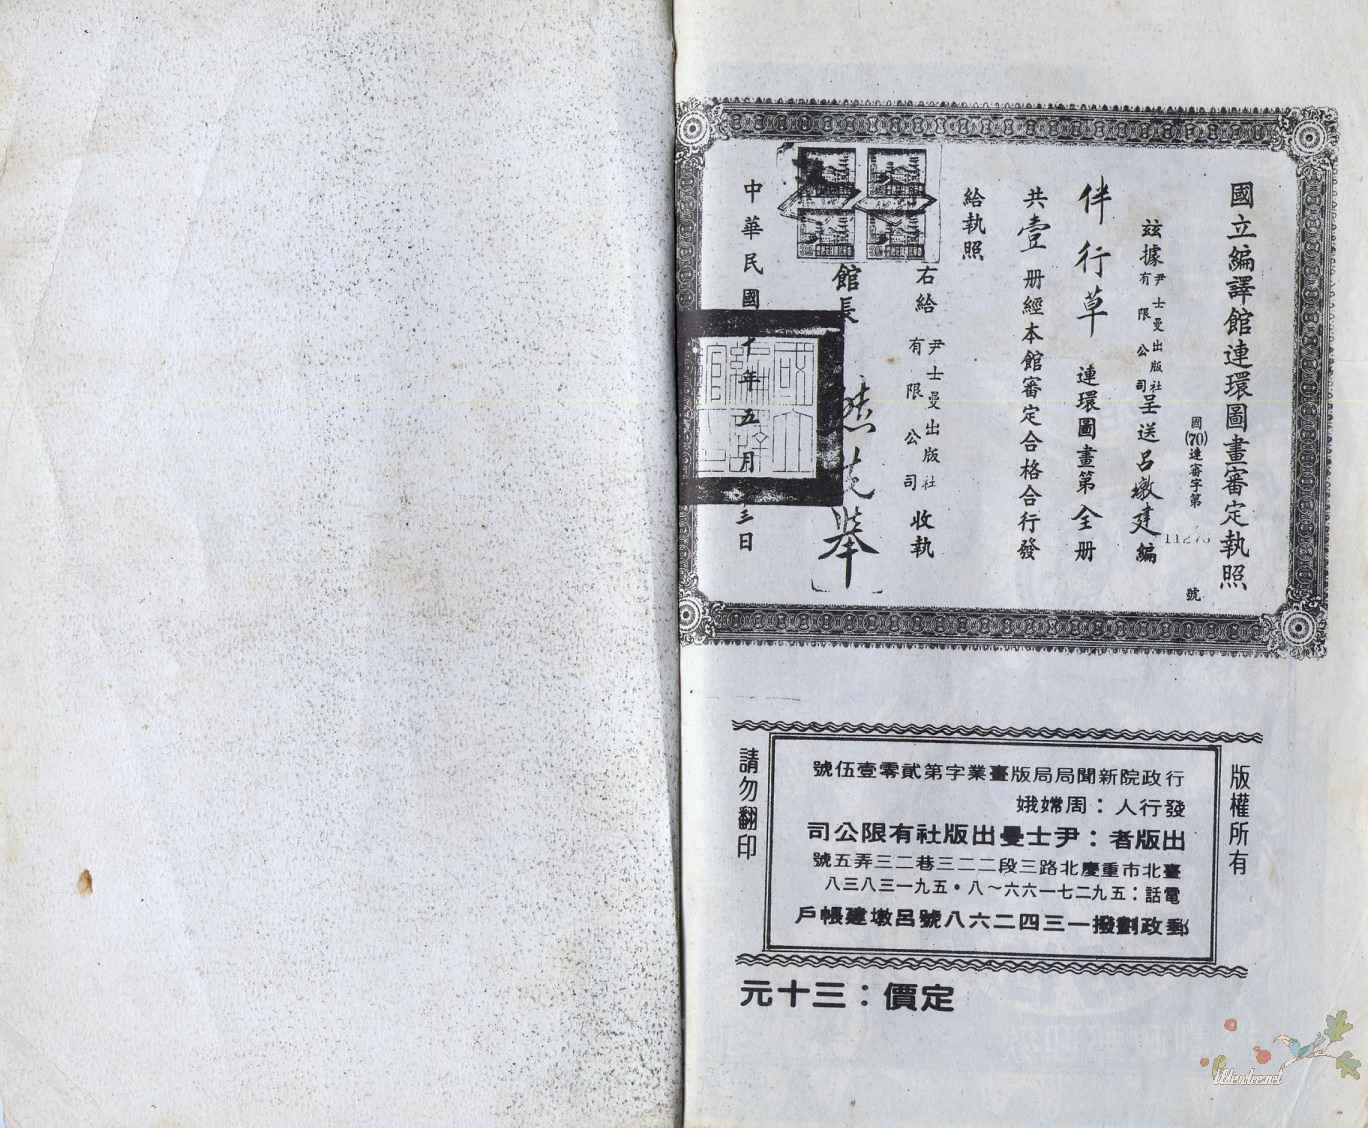 國立編譯館連環圖畫審定執照
國(70)連審字第
號
茲據尹士曼出版社有限公司呈送呂墩建編
伴行草 連環圖畫第全册
共壹册經本館審定合格合行發
給執照
右給 尹士曼出版社有限公司 收執
館長
中華民國 十年五月 三日
版權所有
行政院新聞局局版臺業字第貳零壹伍號
發行人：周嫦娥
出版者：尹士曼出版社有限公司
臺北市重慶北路三段二二三巷二三弄五號
電話：五九二七一六六～八·五九一三八三八
郵政劃撥一三四二六八號呂墩建帳戶
請勿翻印
定價：三十元